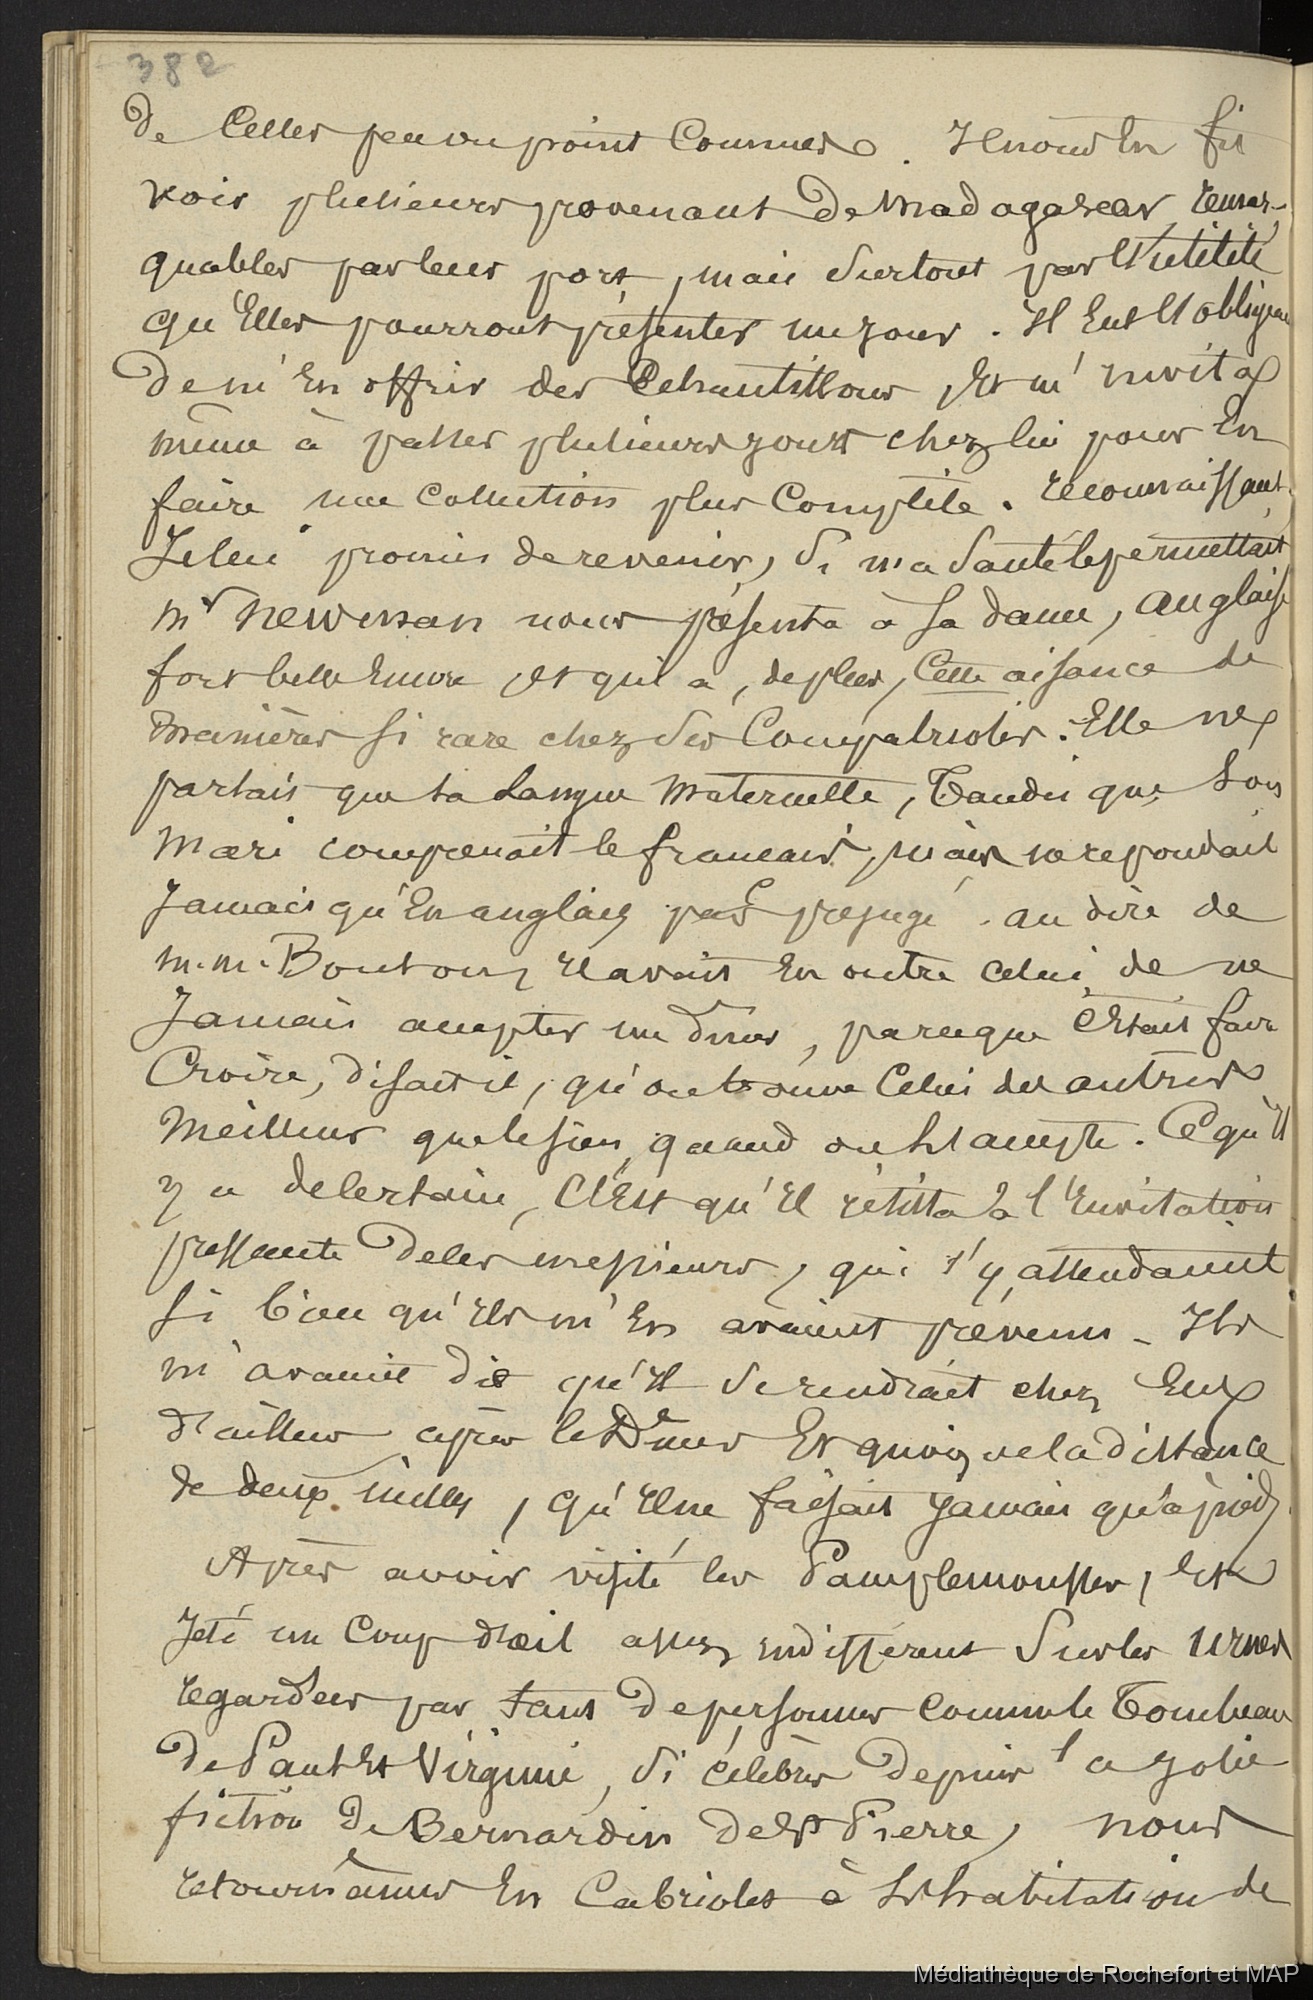 382
de celles peu ou point connues. Il nous en fit
voir plusieurs provenant de Madagascar, remar-
quables par leur port, mais surtout par l'utilité
qu'Elles pourront présenter un jour. Il Eut l'obligeance
de m'En offrir des Echantillons, Et m'invita
même à passer plusieurs jours chez lui pour En
faire une collection plus complète. reconnaissant,
Je lui promis de revenir, si ma santé le permettait
mr Newman nous présenta à sa dame, anglaise
fort belle Encore, Et qui a, de plus, cette aisance de
manières si rare chez ses Compatriotes. Elle ne
parlait que sa Langue maternelle, Tandis que son
mari comprenait le francais, mais ne repondait
Jamais qu'En anglais par prejugé. au dire de
m.m. Bouton, il avait En outre celui de ne
Jamais accepter un diner, parceque c'Etait faire
Croire, disait il, qu'on trouve celui des autres
Meilleur que le sien, quand on l'accepte. Ce qu'Il
y a de certain, C'Est qu'Il résista à l'Invitation
pressante de ces messieurs, qui s'y attendaient
si bien qu'Ils m'En avaient prévenu - Ils
m'avaient dit qu'Il se rendrait chez Eux
d'ailleur après le Dîner Et quoique la distance
de deux milles, qu'Il ne faisait Jamais qu'à pied,
Après avoir visité les Pamplemousses, Et
Jeté un Coup d'œil assez indifférent sur les urnes
regardées par tant de personnes comme le Tombeau
de Paul Et Virginie, si célèbres depuis la jolie
fiction de Bernardin de St Pierre, nous
retournâmes En Cabriolet à l'habitation de
Médiathèque de Rochefort et MAP